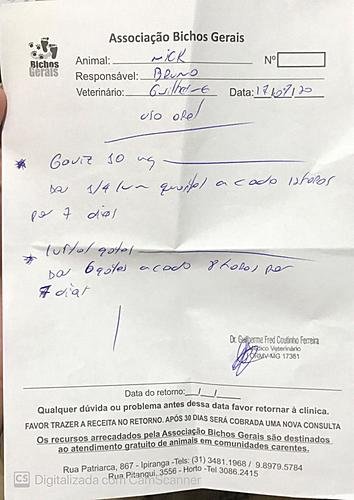 Associação Bichos Gerais
Bichos Gerais
Animal: Mick Nº
Responsável: Bruno
Veterinário: Guilherme Data: 17/07/20
uso oral
* Gaviz 10 mg
Dar 1/4 (um quarto) a cada 12 horas
por 7 dias
* Luftal gotas
Dar 6 gotas a cada 8 horas por
7 dias
Dr. Guilherme Fred Coutinho Ferreira
Médico Veterinário
CRMV-MG 17381
Data do retorno: / /
Qualquer dúvida ou problema antes dessa data favor retornar à clínica.
FAVOR TRAZER A RECEITA NO RETORNO. APÓS 30 DIAS SERÁ COBRADA UMA NOVA CONSULTA
Os recursos arrecadados pela Associação Bichos Gerais são destinados
ao atendimento gratuito de animais em comunidades carentes.
Rua Patriarca, 867 - Ipiranga -Tels: (31) 3481.1968 / 9.8979.5784
Rua Pitangui, 3556 - Horto -Tel 3086.2415
CS Digitalizada com CamScanner